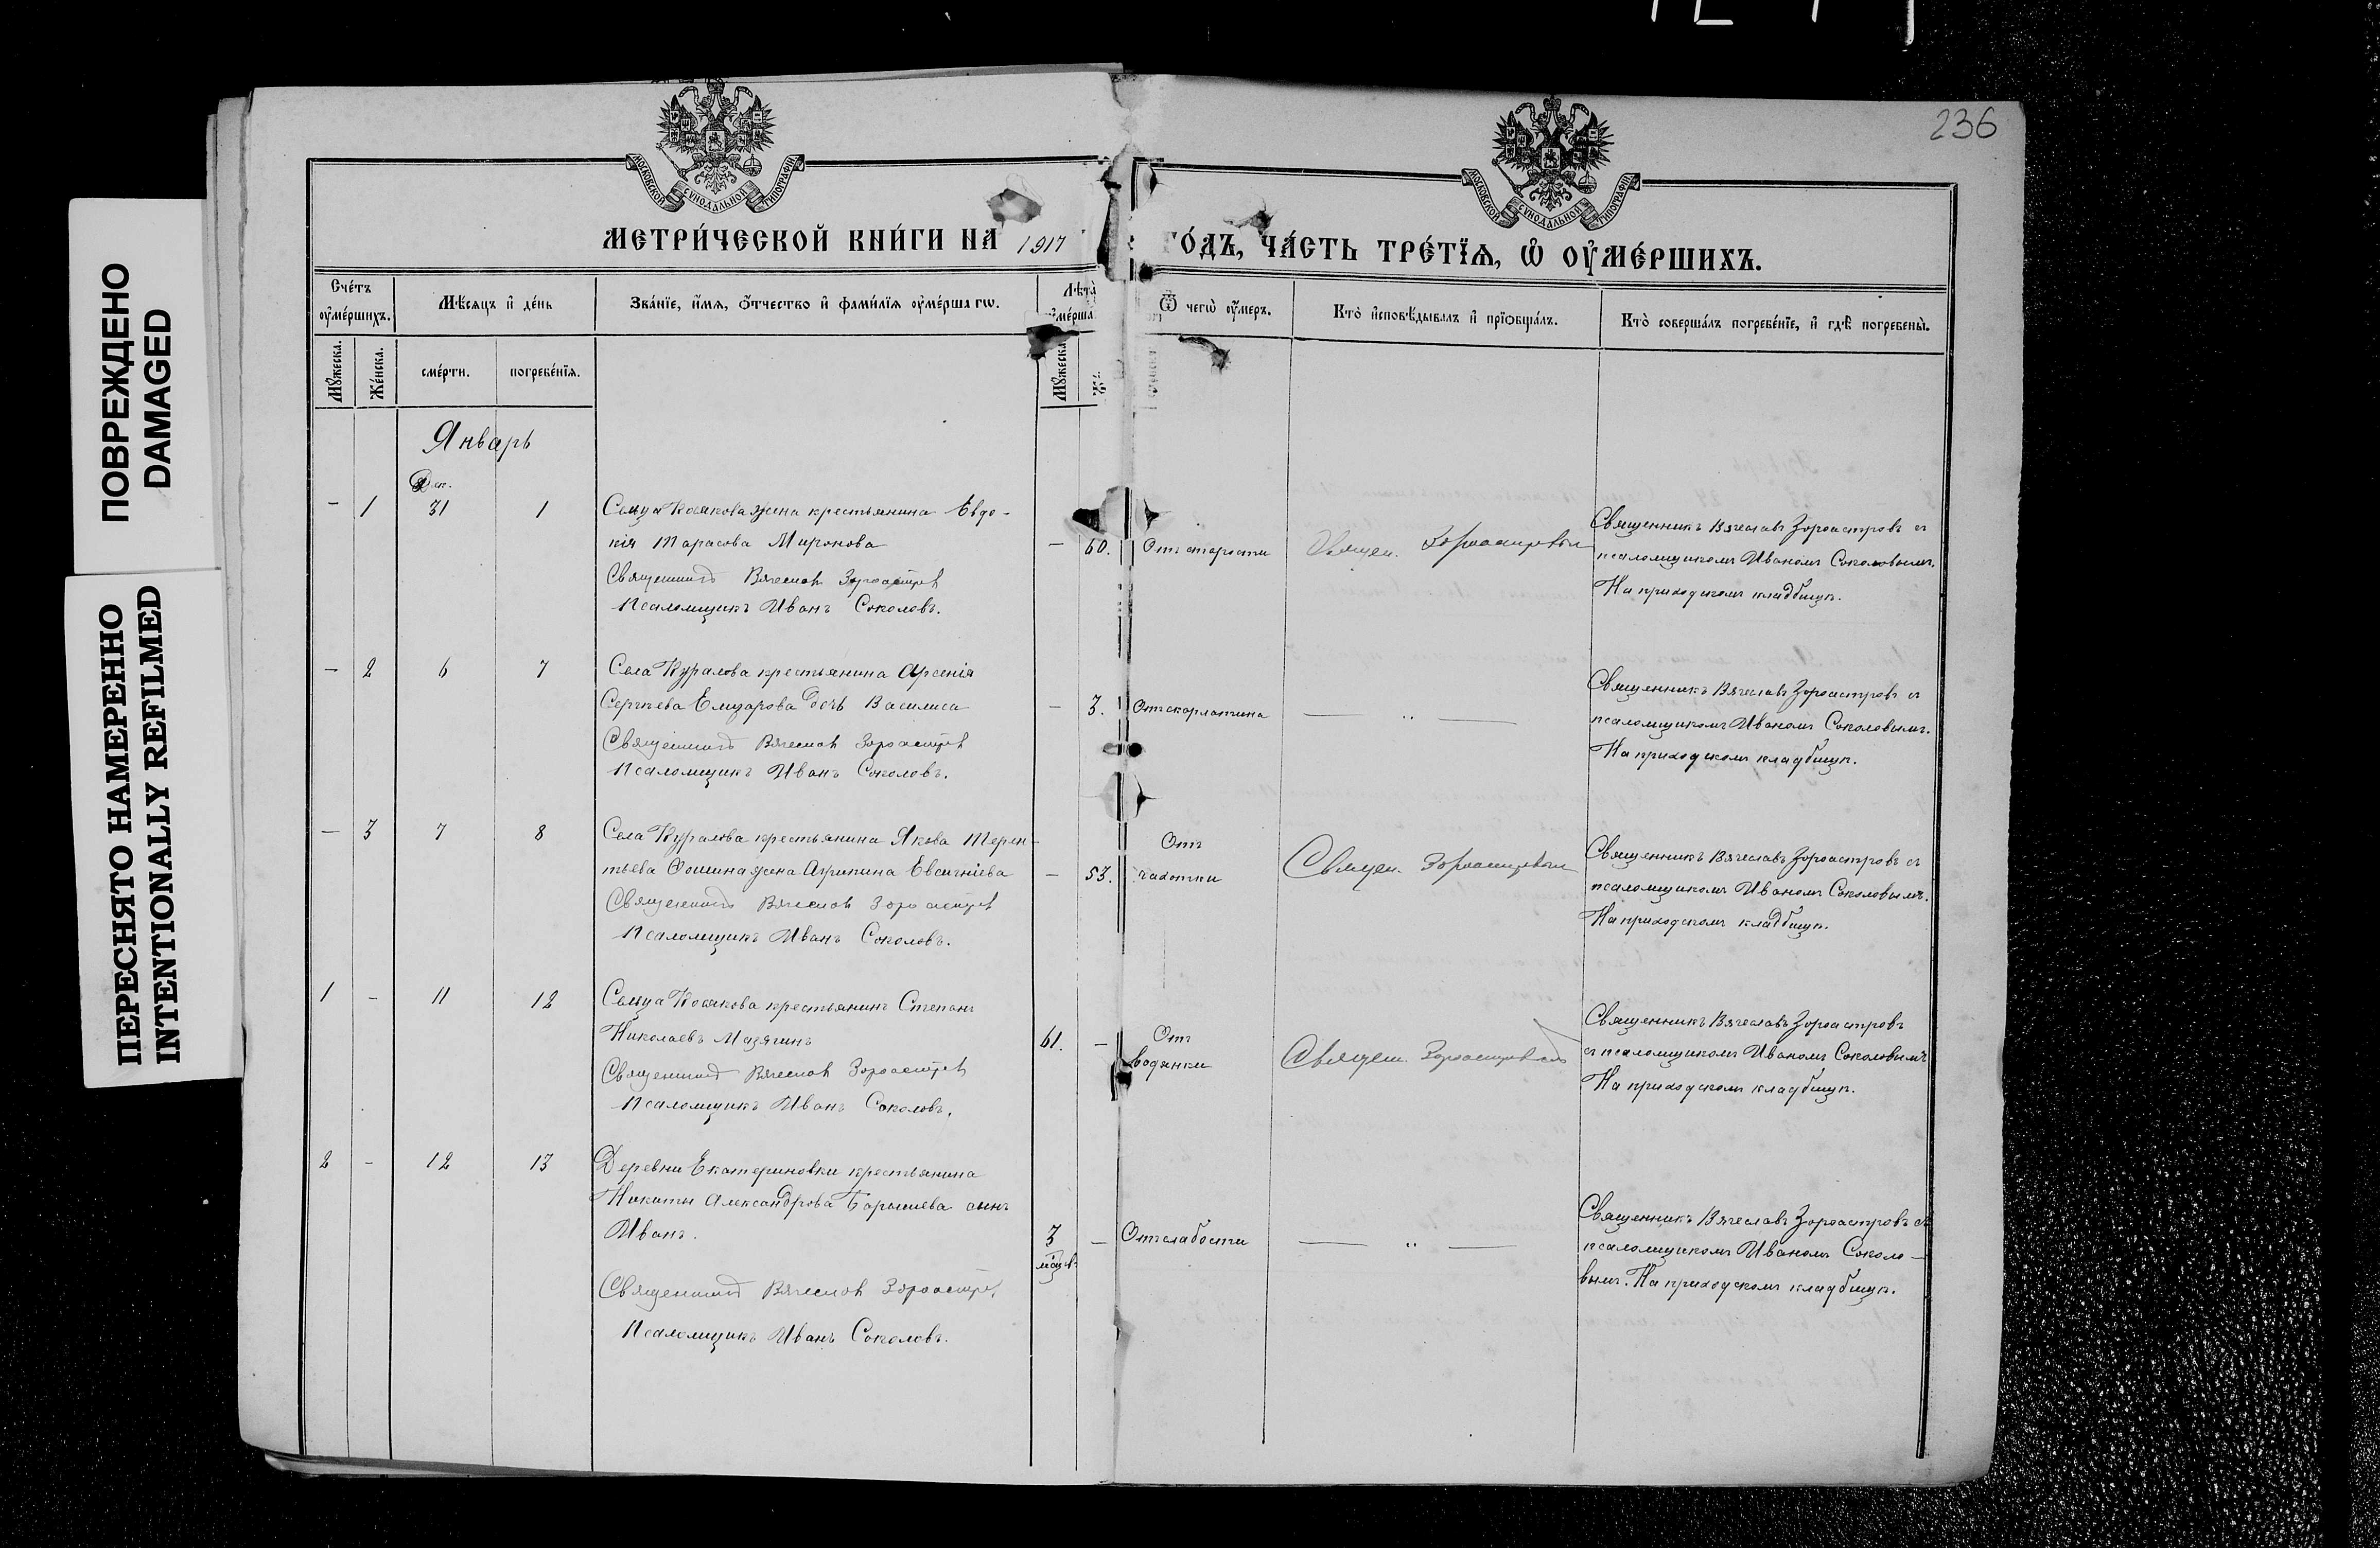 236
ПОВРЕЖДЕНО
DAMAGED
ПЕРЕСНЯТО НАМЕРЕННО
INTENTIONALLY REFILMED
МОСКОВСКОЙ СУНОДАЛЬНОЙ ТИПОГРАФІИ
МОСКОВСКОЙ СУНОДАЛЬНОЙ ТИПОГРАФІИ
МЕТРИ́ЧЕСКОЙ КНИ́ГИ НА 1917 ГО́ДЪ, ЧА́СТЬ ТРЕ́ТЇѦ, Ѡ҆ ОУ҆МЕ́РШИХЪ.
Сче́тъ оу҆ме́ршихъ.
Мѣ́сяцъ и҆ де́нь
Зва́нїе, и҆́мя, ѻ҆́тчество и҆ фами́лїя оу҆ме́ршагѡ.
Лѣ́та оу҆ме́рша
Ѿ чегѡ̀ оу҆́меръ.
Кто̀ и҆сповѣ́дывалъ и҆ прїѡбща́лъ.
Кто̀ соверша́лъ погребе́нїе, и҆ гдѣ̀ погребены̀.
Мꙋ́жеска.
Же́нска.
сме́рти.
погребе́нїя.
Мꙋ́жеска
Январь
Дек.
- 1 31 1
Сельца Косякова жена крестьянина Евдо-
кія Тарасова Миронова
Священникъ Вячеслав Зороастров
Псаломщикъ Иванъ Соколовъ.
- 60.
От старости
Священ. Зороастровым
Священникъ Вячеславъ Зороастровъ съ
псаломщикомъ Иваномъ Соколовымъ.
На приходскомъ кладбищѣ.
- 2 6 7
Села Куралова крестьянина Арсенія
Сергѣева Елизарова дочь Василиса
Священникъ Вячеслав Зороастров
Псаломщикъ Иванъ Соколовъ.
- 3.
От скарлатина
— „ —
Священникъ Вячеславъ Зороастровъ съ
псаломщикомъ Иваномъ Соколовымъ.
На приходскомъ кладбищѣ.
- 3 7 8
Села Куралова крестьянина Якова Терен-
тьева Фомина жена Агрипина Евсигніева
Священникъ Вячеслав Зороастров
Псаломщикъ Иванъ Соколовъ.
- 53.
Отъ
чахотки
Священ. Зороастровым
Священникъ Вячеславъ Зороастровъ съ
псаломщикомъ Иваномъ Соколовымъ.
На приходскомъ кладбищѣ.
1 - 11 12
Сельца Косякова крестьянинъ Степанъ
Николаевъ Мазягинъ
Священникъ Вячеслав Зороастров
Псаломщикъ Иванъ Соколовъ.
61. -
От
водянки
Священ. Зороастровым
Священникъ Вячеславъ Зороастровъ
съ псаломщикомъ Иваномъ Соколовымъ
На приходскомъ кладбищѣ.
2 - 12 13
Деревни Екатериновки крестьянина
Никиты Александрова Барышева сынъ
Иванъ.
Священникъ Вячеслав Зороастров
Псаломщикъ Иванъ Соколовъ.
3 -
мѣсяц.
От слабости
— „ —
Священникъ Вячеславъ Зороастровъ съ
псаломщикомъ Иваномъ Соколо-
вымъ. На приходскомъ кладбищѣ.